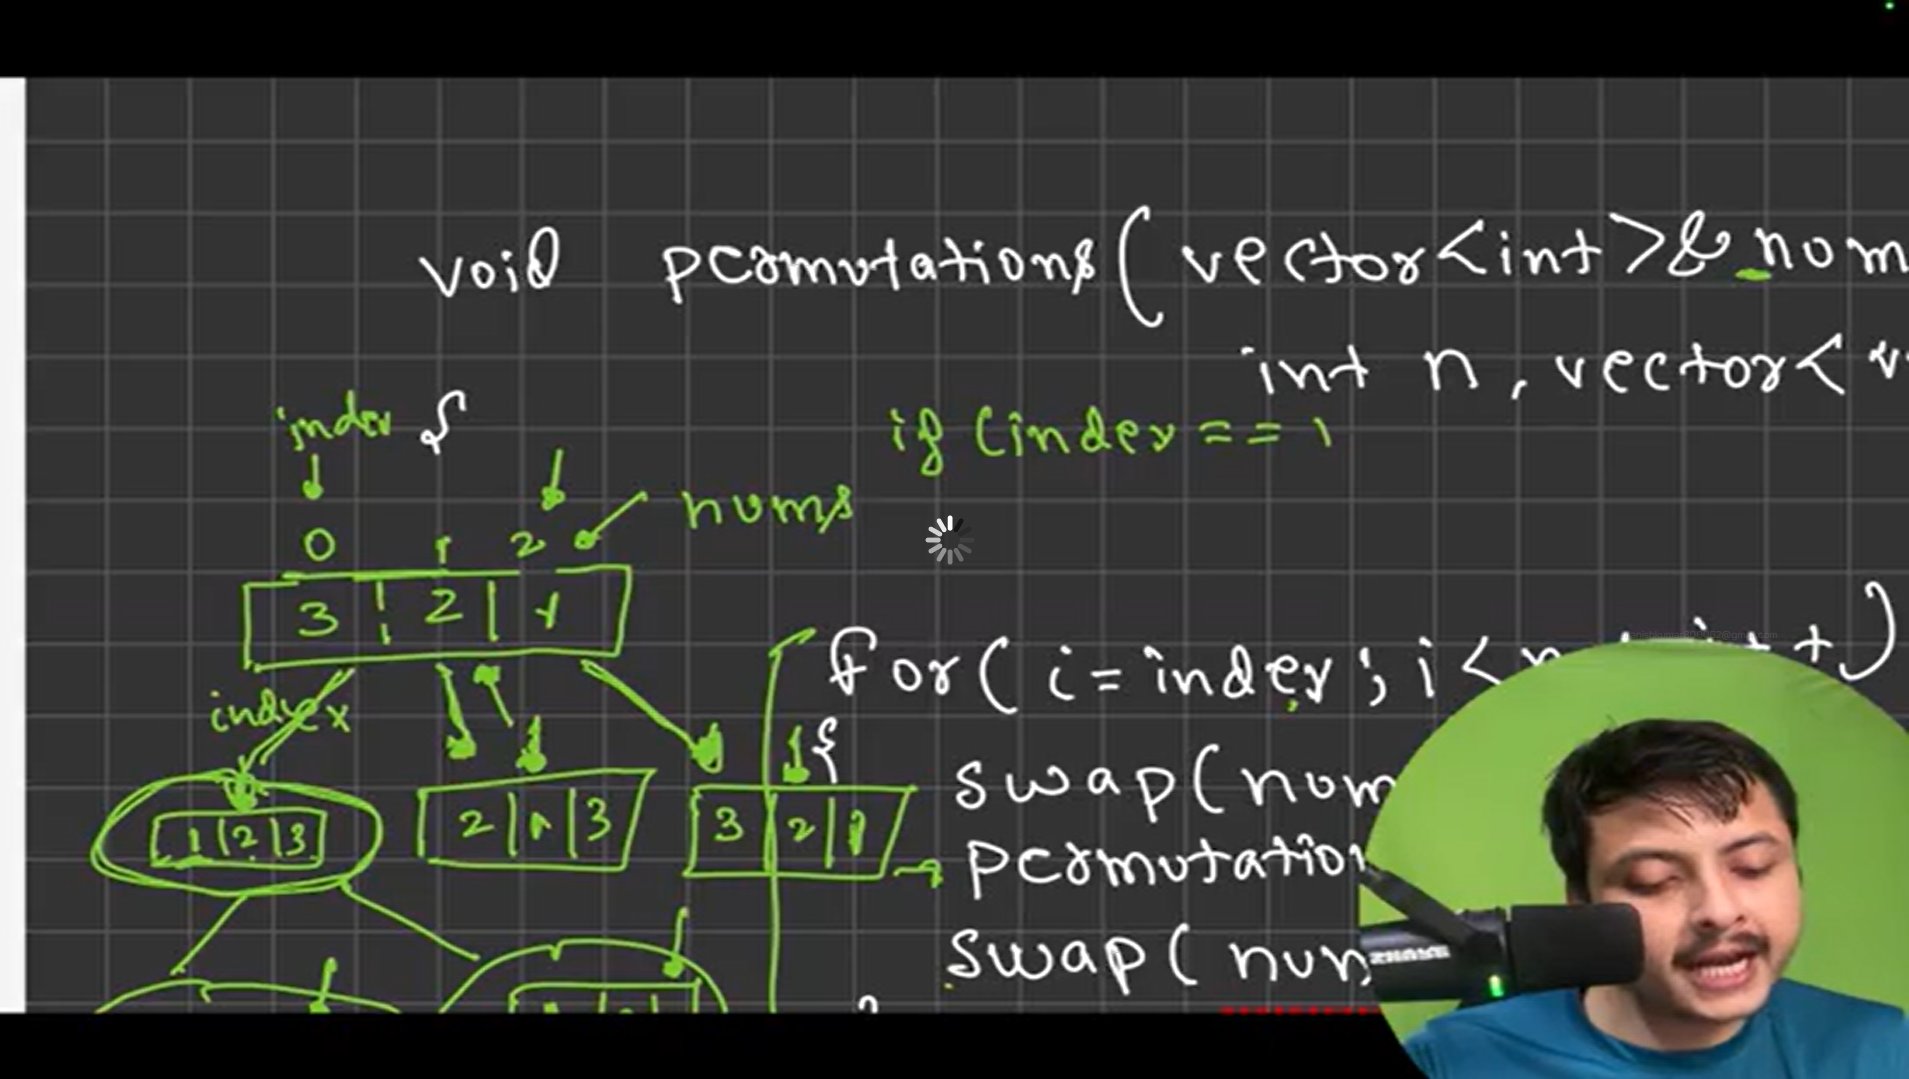 void permutations(vector<int>& num
int n, vector<
index {
if (index ==
nums
0 1 2
3 2 1
for( i=index; i<
index
{
swap(num
1|2|3
2|1|3
3 2|1
permutation
swap( num